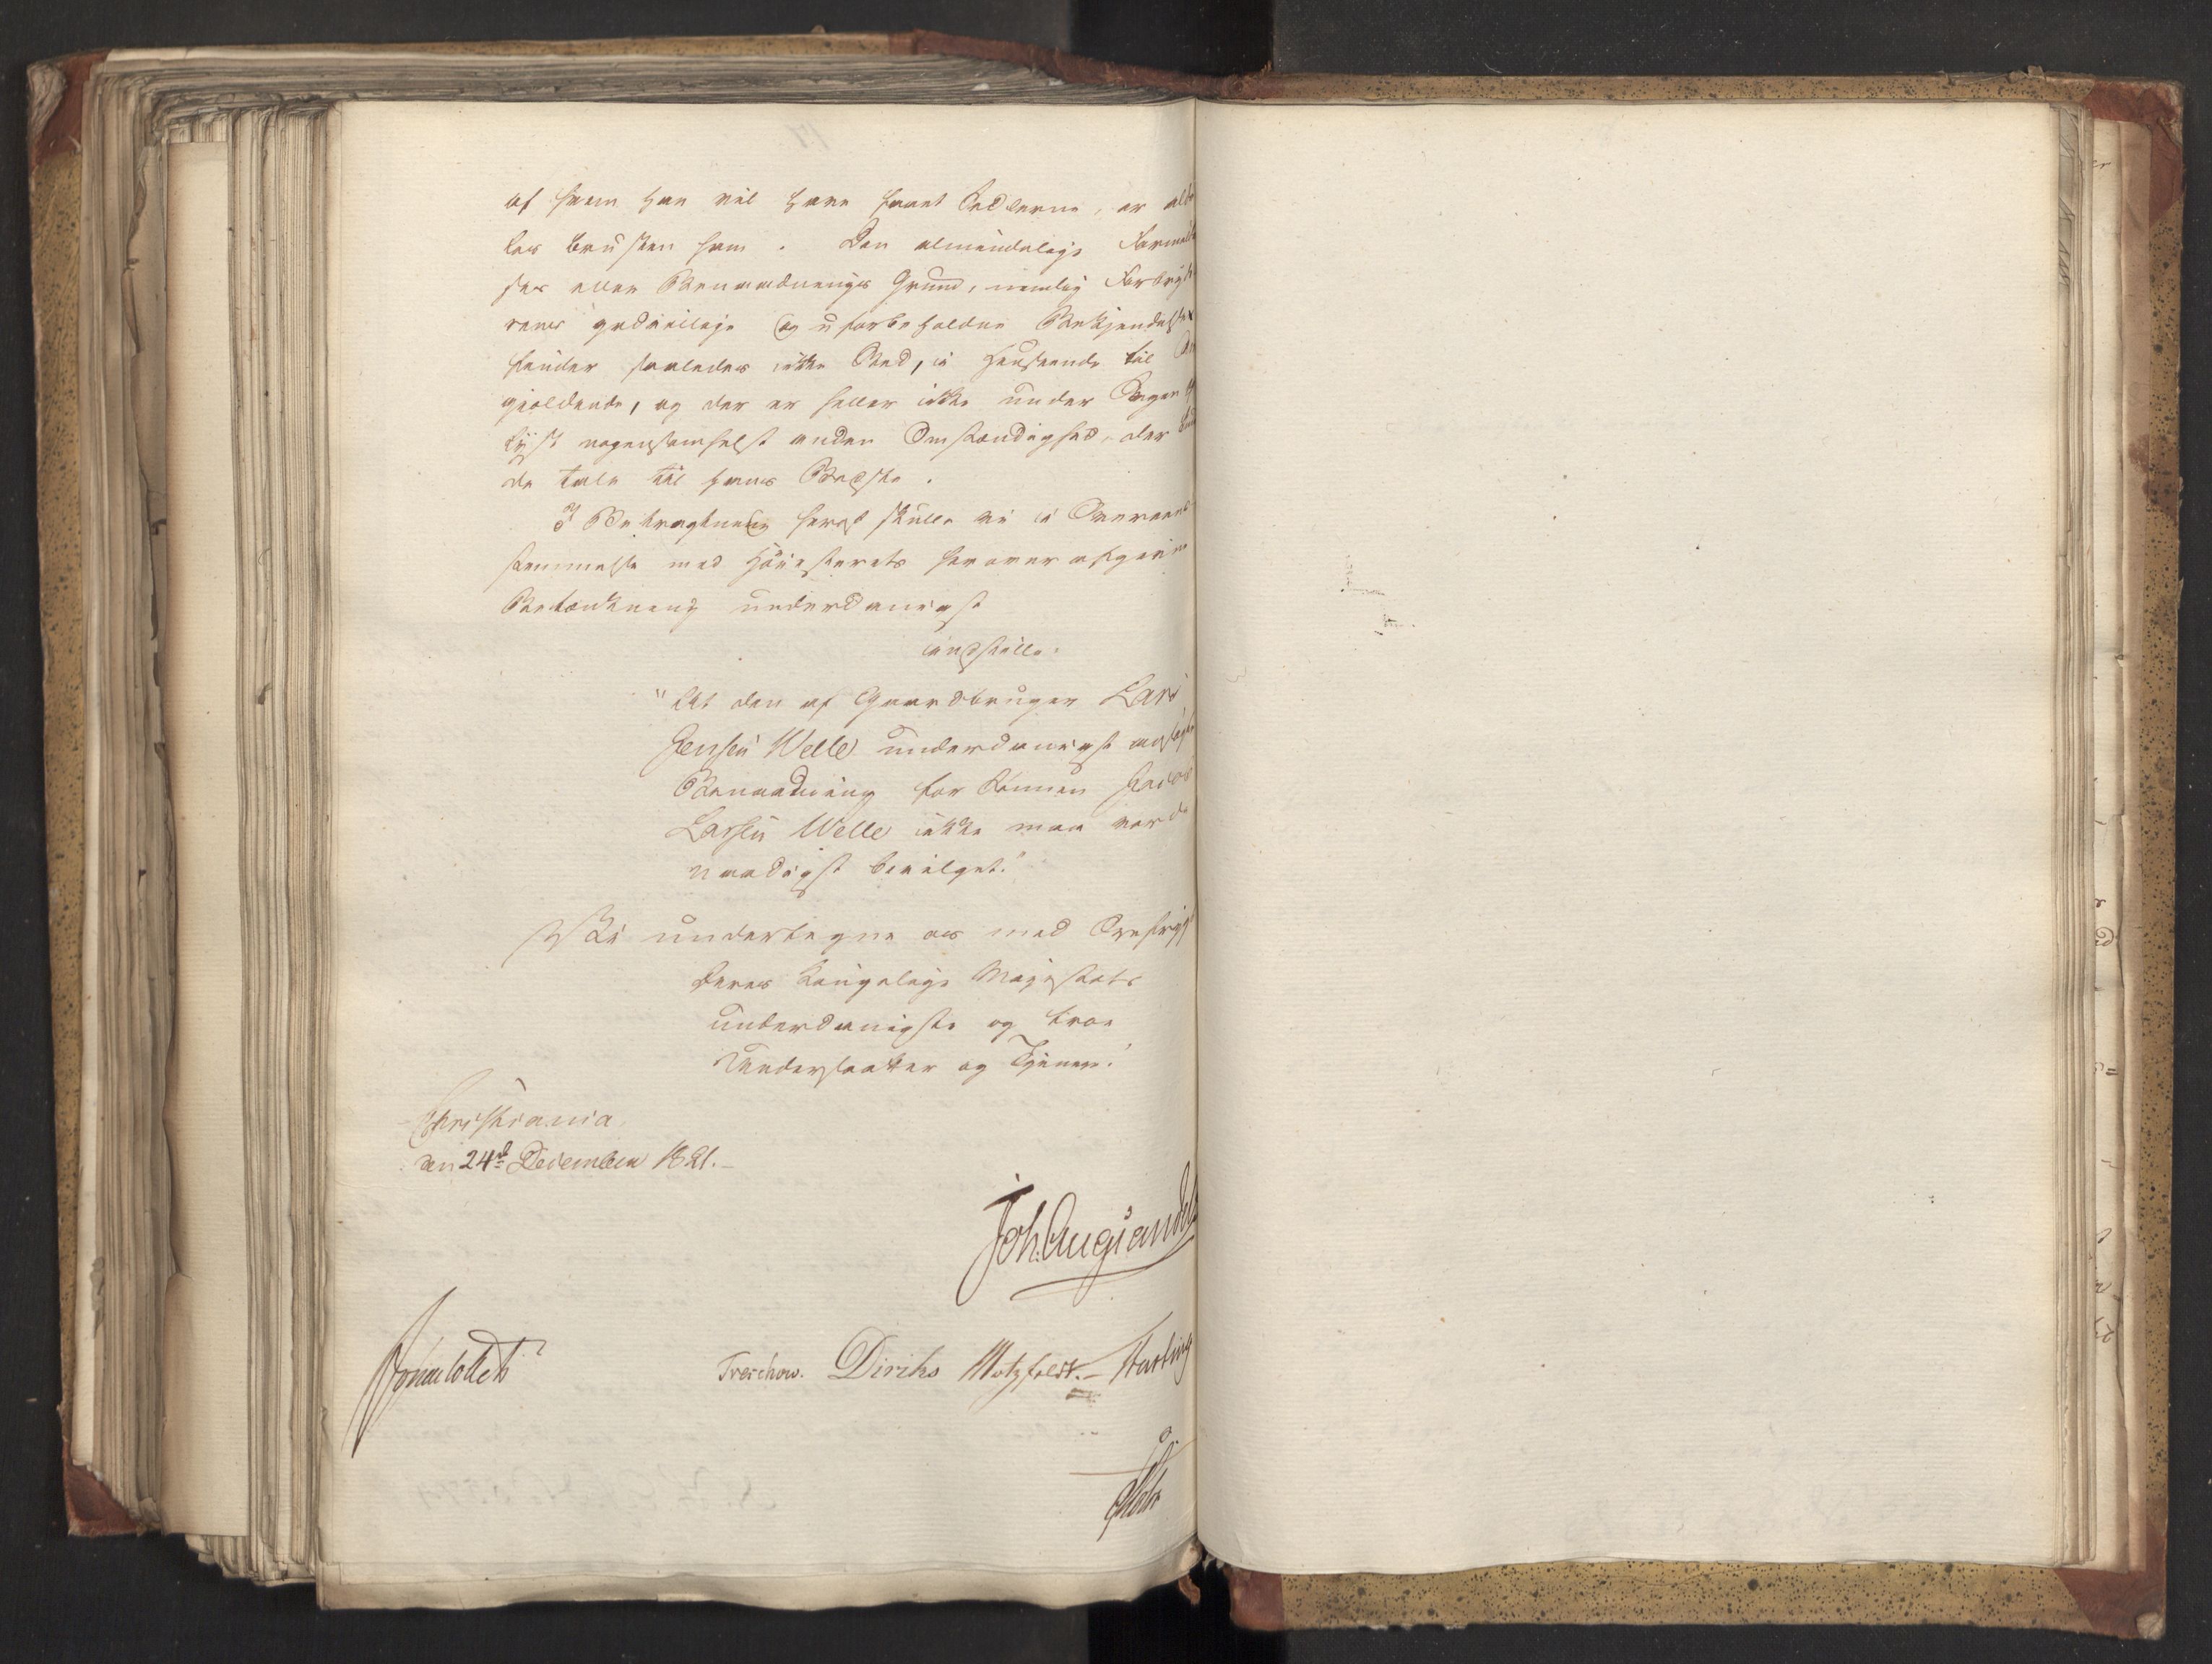 af hvem han vil have faaet Sedlerne, er alde
les berusten ham. Den almindelige Formild
ses eller Benaadnings Grund, nemlig Forbryde
rens godvillige og uforbeholdne Bekjendelse
finder saaledes ikke Sted, i Henseende til
gjeldende, og der er heller ikke under Sagen op
lyst nogensomhelst anden Omstændighed, der kun
de tale til hans Bedste.
I Betragtning heraf skulle vi i Overeens
stemmelse med Höiesterets herover afgivne
Betænkning underdanigst
indstille:
"At den af Gaardbruger Lars
Jensen Welle underdanigst ansøgte
Benaadning for Sønnen Jacob
Larsen Welle ikke maa vorde
naadigst bevilget."
Vi undertegne os med Dybfrygt
Deres Kongelige Majestæts
underdanigste og troe
Undersaatter og Tjenere.
Christiania,
den 24d December 1821.
Joh. Aug: Sandels
Sommerfeldt
Treschow. Diriks Motzfeldt. Fasting
Holst